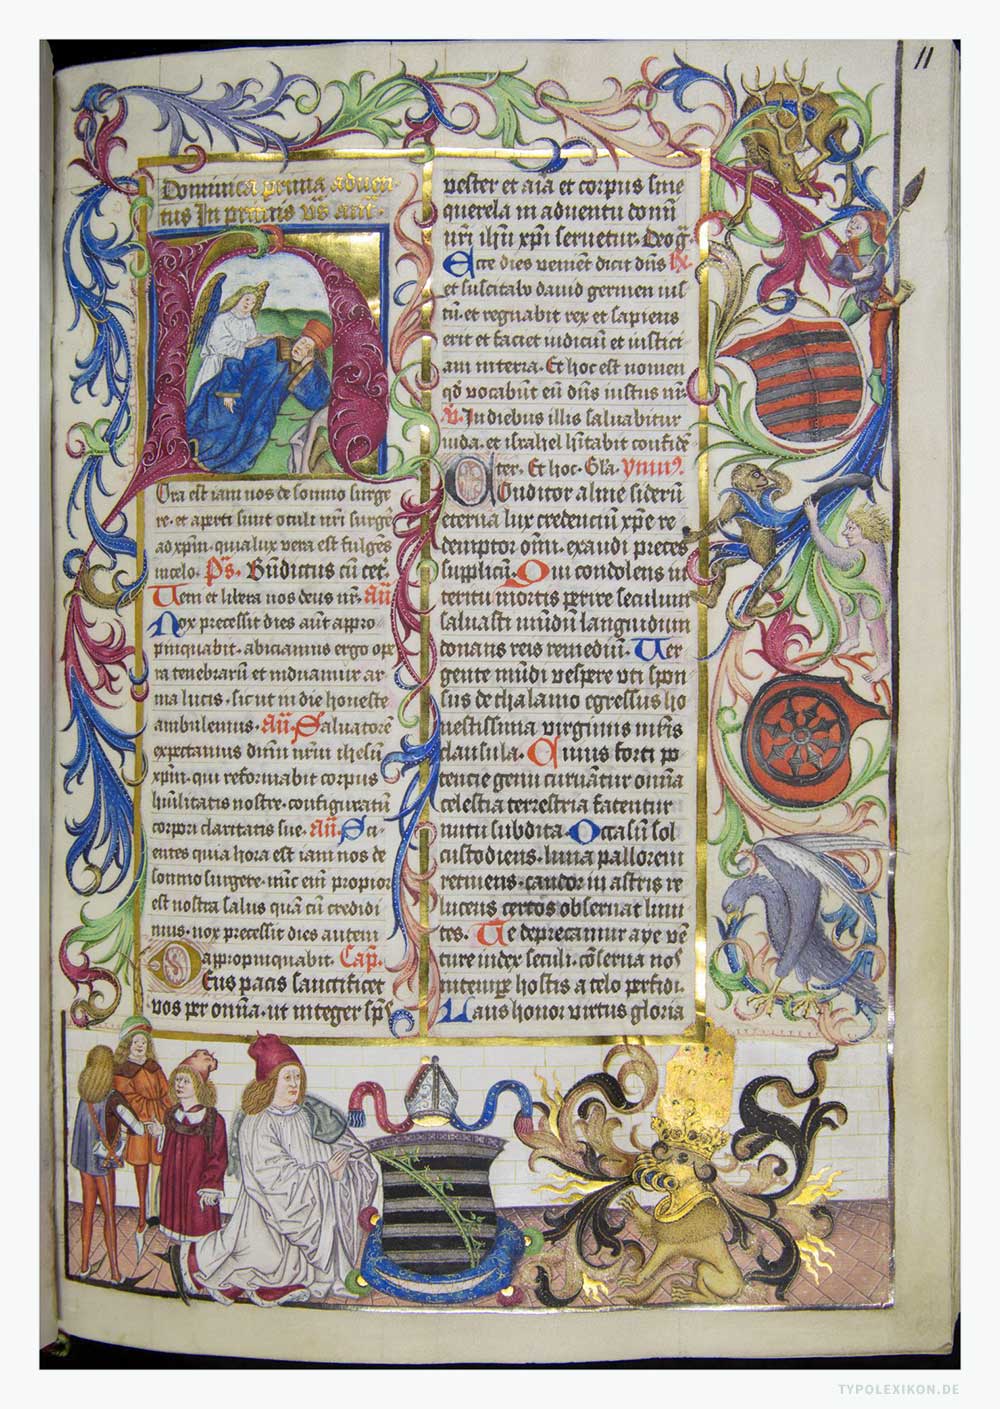 11
Dominica prima aduen-
tus In primis vs̄ an̄
Ora est iam nos de somno surge
re · et aperti sunt oculi nr̄i surgē
ad xp̄m · quia lux vera est fulgēs
in celo · Ps̄ · Bn̄dictus cū cet̄.
Uem et libera nos deus nr̄ · an̄
Nox precessit dies aūt appro-
pinquabit · abiciamus ergo ope
ra tenebrarū et induamur ar
ma lucis · sicut in die honeste
ambulemus · an̄ · Saluatorē
expectamus dn̄m nr̄m ihesū
xp̄m · qui reformabit corpus
hūilitatis nostre · configuratū
corpori claritatis sue · an̄ · Sci-
entes quia hora est iam nos de
somno surgere · nūc em̄ propior
est nostra salus quā cū credidi
mus · nox precessit dies autem
appropinquabit · Cap̄.
Deus pacis sanctificet
vos per om̄ia · ut integer sp̄s
vester et aīa et corpus sine
querela in aduentu domī
nr̄i ihū xp̄i seruetur · Deog̅
Ecce dies venient dicit dn̄s
et suscitabo dauid germen ius
tū · et regnabit rex et sapiens
erit et faciet iudiciū et iustici
am in terra · Et hoc est nomen
qd̄ vocabūt eū dn̄s iustus nr̄ ·
v̄ · In diebus illis saluabitur
iuda · et israhel hītabit confidē
ter · Et hoc · Gl̄a · ymnꝰ.
Conditor alme siderū
eterna lux credenciū xp̄e re
demptor om̄i · exaudi preces
supplicū · Qui condolens in
teritu mortis perire seculum
saluasti mūdū languidum
donans reis remediū · Uer
gente mūdi vespere vti spon
sus de thalamo egressus ho
nestissima virginis mr̄is
clausula · Cuius forti po
tencie genu curuātur om̄ia
celestia terrestria fatentur
nutu subdita · Occasū sol
custodiens · luna pallorem
retinens · candor in astris re
lucens certos obseruat limi
tes · Te deprecamur agye vē
ture iudex seculi · cōserua nos
in tempe hostis a telo perfidi ·
Laus honor virtus gloria
TYPOLEXIKON.DE